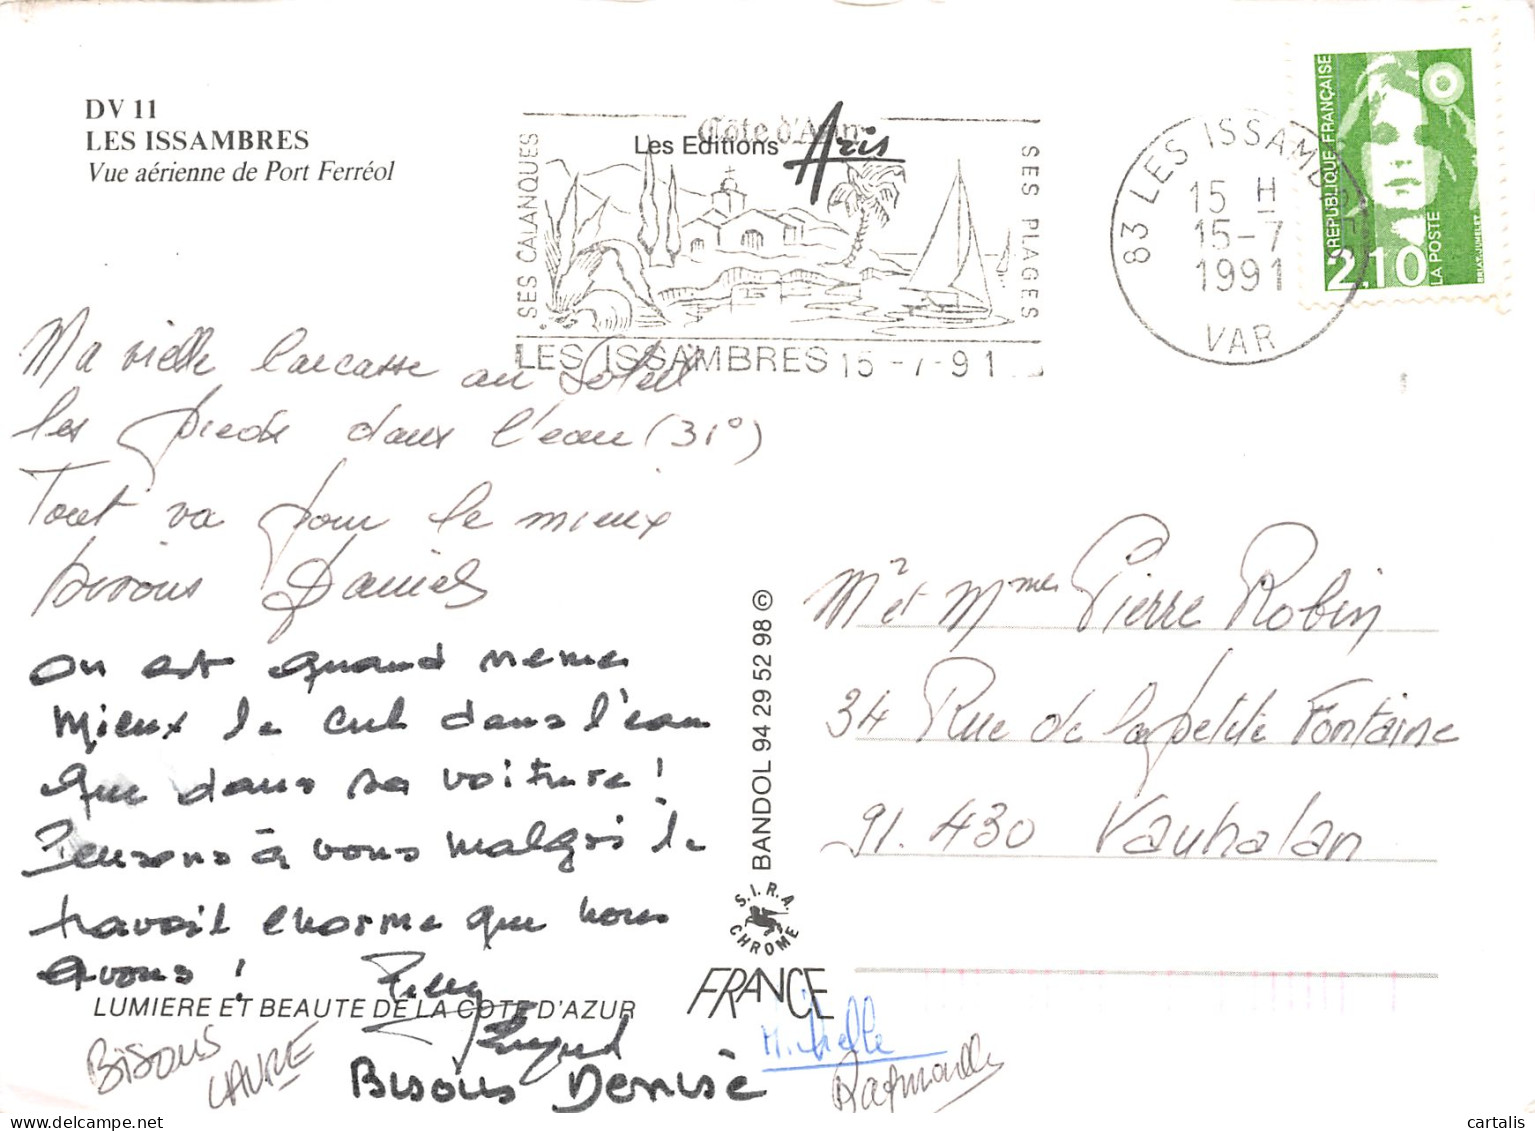 DV 11
LES ISSAMBRES
Vue aérienne de Port Ferréol
Côte d'Azur
Les Editions Aris
SES CALANQUES
SES PLAGES
LES ISSAMBRES 15-7-91
83 LES ISSAMBRES
15 H
15-7
1991
VAR
REPUBLIQUE FRANÇAISE
2,10
LA POSTE
BRIAT-JUMELET
Ma vielle carcasse au Soleil
les pieds dans l'eau (31°)
Tout va pour le mieux
bisous Daniel
On est quand meme
mieux le cul dans l'eau
que dans sa voiture !
Pensons à vous malgré le
travail enorme que nous
avons !
Bisous
LAURE
Bisous Denise
Michelle
Raymonde
LUMIERE ET BEAUTE DE LA COTE D'AZUR
BANDOL 94 29 52 98 ©
S.I.R.A.
CHROME
FRANCE
Mr et Mme Pierre Robin
34 Rue de la petite Fontaine
91.430 Vauhalan
cartalis
delcampe.net